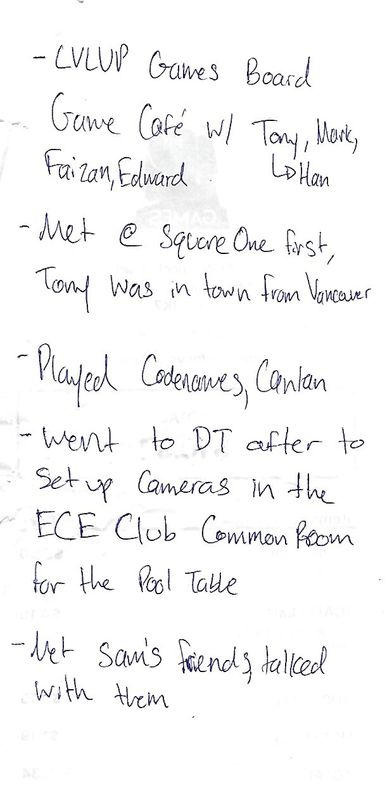 - LVLUP Games Board
Game Café w/ Tony, Mark,
Faizan, Edward ↳ Han
- Met @ Square One first,
Tony was in town from Vancouver
- Played Codenames, Cantan
- Went to DT after to
set up Cameras in the
ECE Club Common Room
for the Pool Table
- Met Sam's friends, talked
with them